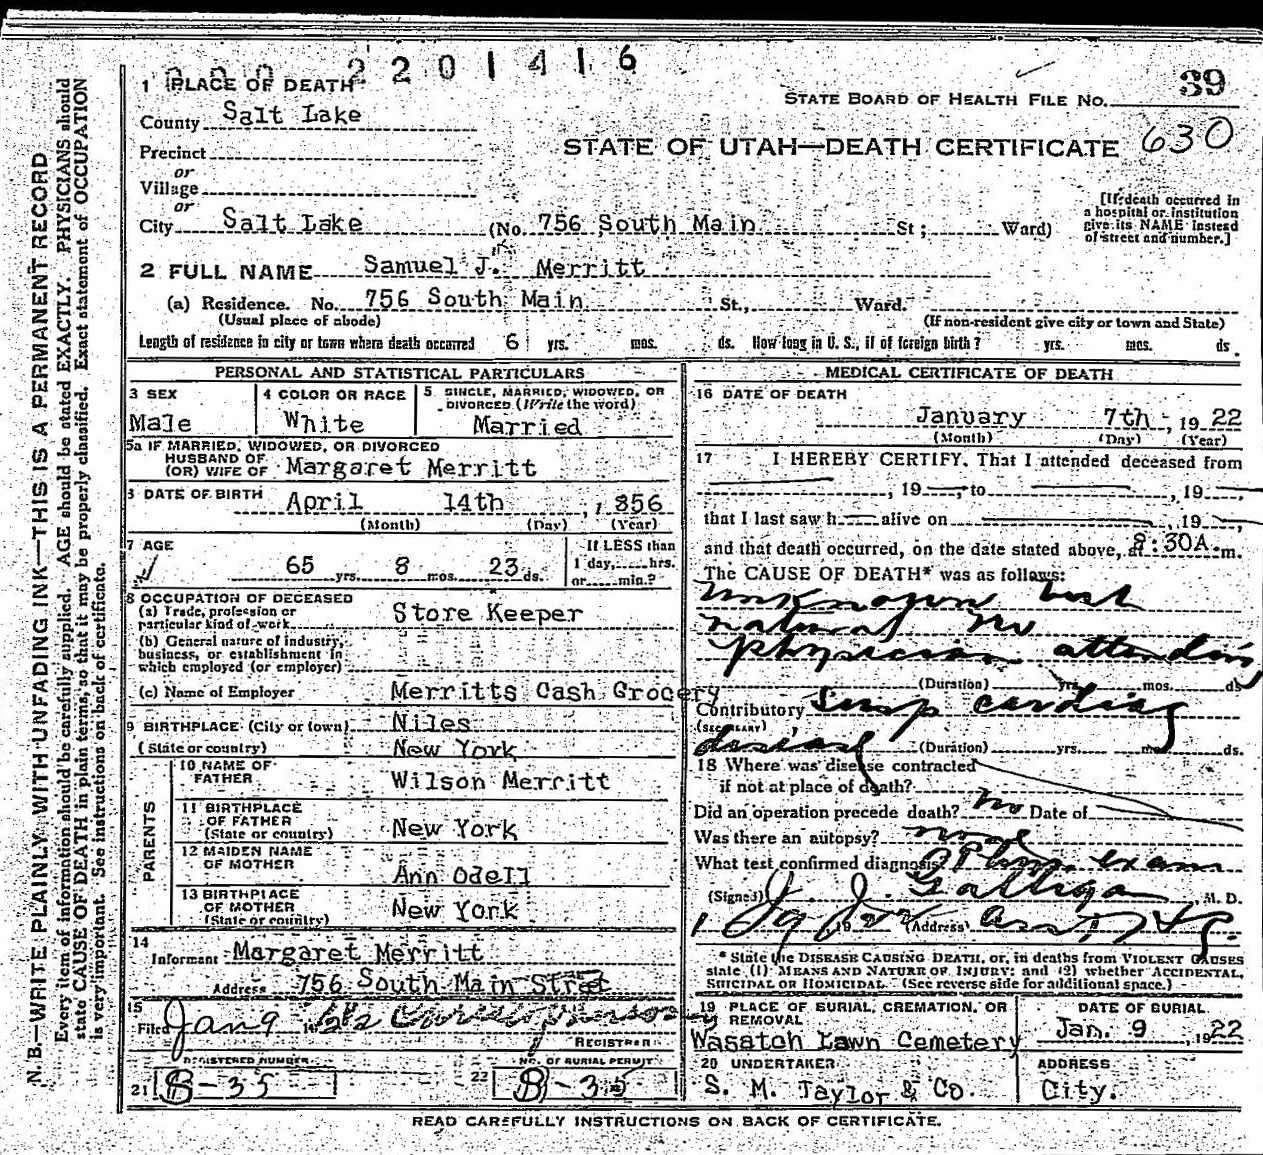 0 0 0 2 2 0 1 4 1 6
39
1 PLACE OF DEATH
STATE BOARD OF HEALTH FILE NO.
County Salt Lake
STATE OF UTAH—DEATH CERTIFICATE 630
Precinct
or
Village
or
City Salt Lake (No. 756 South Main St; Ward)
[If death occurred in
a hospital or institution
give its NAME instead
of street and number.]
2 FULL NAME Samuel J. Merritt
(a) Residence. No. 756 South Main St., Ward.
(Usual place of abode) (If non-resident give city or town and State)
Length of residence in city or town where death occurred 6 yrs. mos. ds. How long in U. S., if of foreign birth? yrs. mos. ds.
PERSONAL AND STATISTICAL PARTICULARS
3 SEX
Male
4 COLOR OR RACE
White
5 SINGLE, MARRIED, WIDOWED, OR
DIVORCED (Write the word)
Married
5a IF MARRIED, WIDOWED, OR DIVORCED
HUSBAND OF
(OR) WIFE OF Margaret Merritt
6 DATE OF BIRTH April 14th, 1856
(Month) (Day) (Year)
7 AGE
65 yrs. 8 mos. 23 ds.
If LESS than
1 day, hrs.
or min.?
8 OCCUPATION OF DECEASED
(a) Trade, profession or
particular kind of work Store Keeper
(b) General nature of industry,
business, or establishment in
which employed (or employer)
(c) Name of Employer Merritts Cash Grocery
9 BIRTHPLACE (City or town) Niles
(State or country) New York
PARENTS
10 NAME OF
FATHER Wilson Merritt
11 BIRTHPLACE
OF FATHER
(State or country) New York
12 MAIDEN NAME
OF MOTHER
Ann Odell
13 BIRTHPLACE
OF MOTHER
(State or country) New York
14
Informant Margaret Merritt
Address 756 South Main Street
15
Filed Jan 9
REGISTRAR
REGISTERED NUMBER
21 B-35
NO. OF BURIAL PERMIT
22 B-35
MEDICAL CERTIFICATE OF DEATH
16 DATE OF DEATH
January 7th, 1922
(Month) (Day) (Year)
17 I HEREBY CERTIFY, That I attended deceased from
, 19 , to , 19 ,
that I last saw h alive on , 19 ,
and that death occurred, on the date stated above, at 8:30A.m.
The CAUSE OF DEATH* was as follows:
Unknown but
natural No
physician attending
(Duration) yrs. mos. ds.
Contributory cardiac
(SECONDARY)
disease (Duration) yrs. mos. ds.
18 Where was disease contracted
if not at place of death?
Did an operation precede death? no Date of
Was there an autopsy? none
What test confirmed diagnosis? exam
(Signed) , M. D.
19 (Address)
* State the DISEASE CAUSING DEATH, or, in deaths from VIOLENT CAUSES
state (1) MEANS AND NATURE OF INJURY; and (2) whether ACCIDENTAL,
SUICIDAL OR HOMICIDAL. (See reverse side for additional space.)
19 PLACE OF BURIAL, CREMATION, OR
REMOVAL
Wasatch Lawn Cemetery
DATE OF BURIAL
Jan. 9, 1922
20 UNDERTAKER
S. M. Taylor & Co.
ADDRESS
City.
READ CAREFULLY INSTRUCTIONS ON BACK OF CERTIFICATE.
N. B.—WRITE PLAINLY WITH UNFADING INK—THIS IS A PERMANENT RECORD
Every item of information should be carefully supplied. AGE should be stated EXACTLY. PHYSICIANS should
state CAUSE OF DEATH in plain terms, so that it may be properly classified. Exact statement of OCCUPATION
is very important. See instructions on back of certificate.